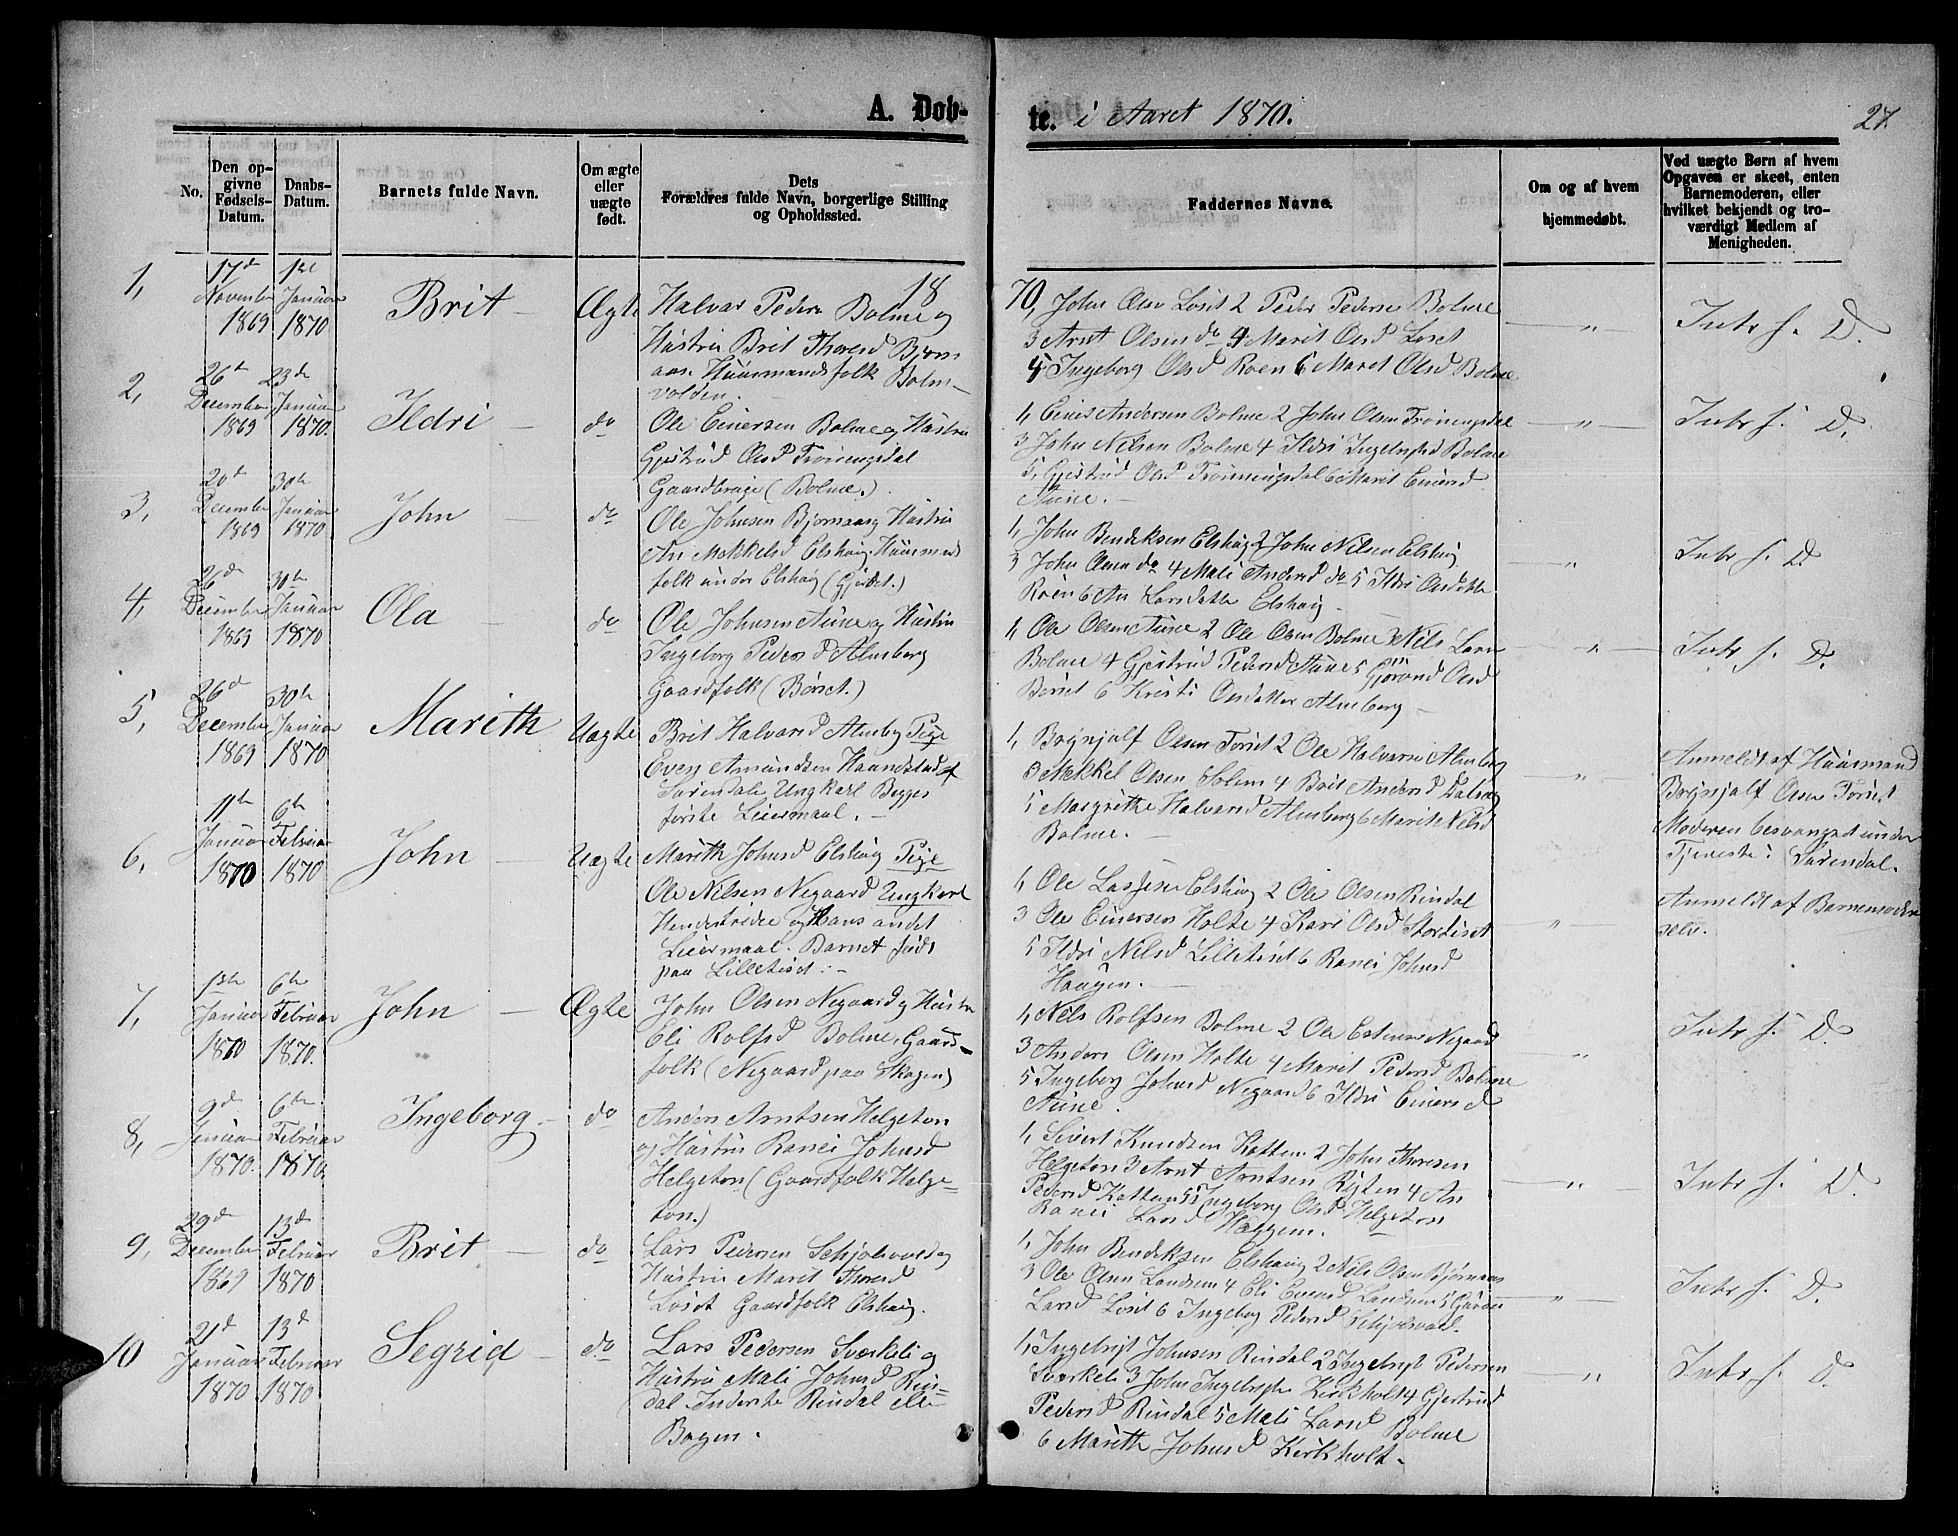 A. Døb-
te. i Aaret 1870.
27.
No.
Den op-
givne
Fødsels-
Datum.
Daabs-
Datum.
Barnets fulde Navn.
Om ægte
eller
uægte
født.
Dets
Forældres fulde Navn, borgerlige Stilling
og Opholdssted.
Faddernes Navne.
Om og af hvem
hjemmedøbt.
Ved uægte Børn af hvem
Opgaven er skeet, enten
Barnemoderen, eller
hvilket bekjendt og tro-
værdigt Medlem af
Menigheden.
18
70.
1,
17de
November
1869
1ste
Januar
1870
Brit
Ægte
Halvar Peders Bolme og
Hustru Brit Thoresd Bjørn
aas. Huusmandsfolk Bolm-
volden.
1, John Olsen Løset 2 Peder Pedersen Bolme
3 Arnt Olsen do 4 Marit Olsd Løset
5 Ingeborg Olsd Roen 6 Maret Olsd Bolme
Intr f. D.
2,
26de
December
1869
23de
Januar
1870.
Ildri
do
Ole Einersen Bolme og Hustru
Gjertrud Olsd Trønningsdal
Gaardbruge (Bolme.)
1, Einer Andersen Bolme 2 John Olsen Trønningsdal
3 John Nilsen Bolme 4 Ildri Ingebrigtsd Bolme
5, Gjertrud Olsd Trønningsdal 6 Marit Einersd
Aune.
Intr f. D.
3,
20de
December
1869
30te
Januar
1870
John
do
Ole Johnsen Bjørnaas og Hustru
An Mekkelsd Elshaug. Huusmands
folk under Elshaug (Gjerdet.)
1, John Bendiksen Elshaug 2 John Nilsen Elshaug
3 John Olsen do 4 Mali Andersd do 5 Ildri Olsdatte
Roen 6 An Larsdatte Elshaug
Intr f. D
4,
26de
December
1869
30te
Januar
1870
Ola
do
Ole Johnsen Aune og Hustru
Ingeborg Pedersd Almberg
Gaardfolk (Børset.)
1, Ole Olsen Aune 2 Ole Olsen Bolme 3 Nils Larsen
Bolme 4 Gjertrud Pedersd Aune 5 Gjørond Olsd
Børset 6 Kristi Olsdatter Almberg
Intr f. D.
5,
26de
December
1869
30te
Januar
1870
Marith
Uægte
Brit Halvarsd Almberg Pige
Even Amundsen Haandstad af
Surendale Ungkarl Begges
første Leiermaal.
1, Brynjulf Olsen Tørset 2 Ole Halvarsen Almberg
3 Mekkel Olsen Solem 4 Brit Andersd Dalsæg
5 Margrethe Halvarsd Almberg 6 Marit Nilsd
Bolme.
Anmeldt af Huusmand
Brynjulf Olsen Tørset
Moderen besvangred under
Tjeneste i Surendal.
6,
11te
Januar
1870
6te
Februar
1870
John
Uægte
Marith Johnsd Elshaug Pige
Ole Nilsen Negaard Ungkarl
Hendes tredie og Hans andet
Leiermaal. Barnet født
paa Lilletiset.
1, Ole Lassesen Elshaug 2 Ole Olsen Rindal
3 Ole Einersen Holte 4 Kari Olsd Stortiset
5 Ildri Nilsd Lilletiset 6 Ranei Johnsd
Haugen.
Anmeldt af Barnemoderen
selv.
7,
13te
Januar
1870
6te
Februar
1870.
John
Ægte
John Olsen Negaard og Hustru
Eli Rolfsd Bolme, Gaard-
folk (Negaard paa Skogen)
1, Nils Rolfsen Bolme 2 Ole Estensen Negaard
3 Anders Olsen Holte 4 Marit Pedersd Bolme
5 Ingeborg Johnsd Negaard 6 Ildri Einersd
Aune.
Intr f. D.
8,
9de
Januar
1870.
6te
Februar
1870.
Ingeborg
do
Anders Arntsen Helgeton
og Hustru Ranei Johnsd
Helgeton (Gaardfolk Helge-
ton.)
1, Sivert Knudsen Kattem 2 John Thoresen
Helgeton 3 Arnt Arntsen Ryten 4 An
Pedersd Kattem 5 Ingeborg Olsd Helgeton
Ranei Larsd Hæggem.
Intr f. D.
9,
29de
December
1869
13de
Februar
1870
Brit
do
Lars Pedersen Schjølsvold og
Hustru Marit Thoresd
Løset Gaardfolk Elshaug.
1, John Bendiksen Elshaug 2 Nils Olsen Bjørnaas
3 Ole Olsen Landsem 4 Eli Einersd Landsem 5 Guruni
Larsd Løset 6 Ingeborg Pedersd Schjølsvold.
Intr f. D.
10
21de
Januar
1870
13de
Februar
1870
Segrid
do
Lars Pedersen Sværkeli og
Hustru Mali Johnsd Rin-
dal Inderste Rindal elle
Bogen.
1, Ingebrigt Johnsen Rindal 2 Ingebrigt Pedersen
Sværkeli 3 John Ingebrigts Kirkholt 4 Gjertrud
Pedersd Rindal 5 Mali Larsd Bolme
6 Marith Johnsd Kirkholt.
Intr f. D.